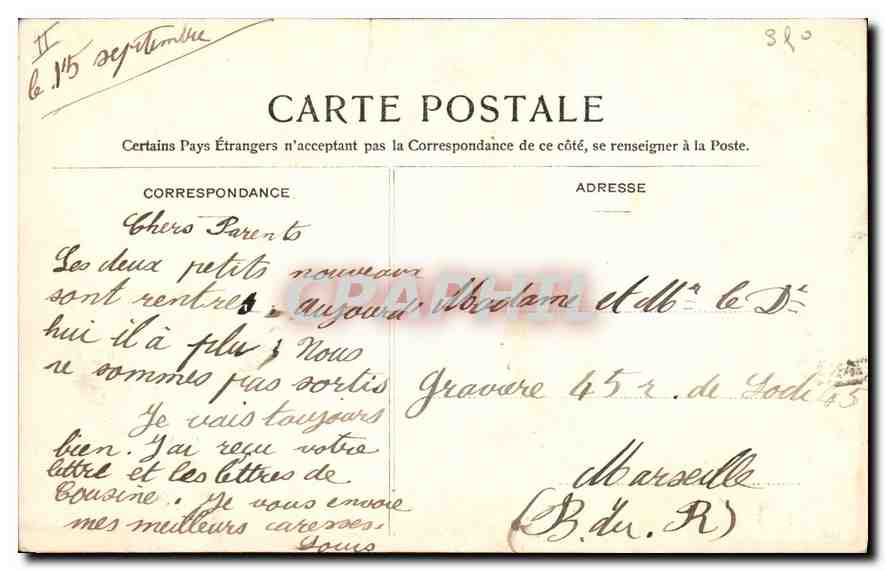 II
le 15 septembre
CARTE POSTALE
Certains Pays Étrangers n'acceptent pas la Correspondance de ce côté, se renseigner à la Poste.
CORRESPONDANCE
Chers Parents
Les deux petits nouveaux
sont rentrés. aujourd'
hui il à plu ; Nous
ne sommes pas sortis
Je vais toujours
bien. J'ai reçu votre
lettre et les lettres de
Cousine. Je vous envoie
mes meilleurs caresses.
Louis
ADRESSE
Madame et Mr le Dr
Gravière 45 r. de Lodi 45
Marseille
(B. du. R)
CPAPHIL